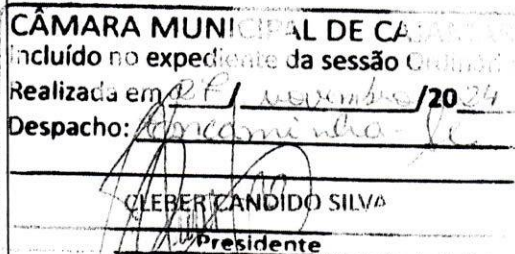 CÂMARA MUNICIPAL DE CAJA
Incluído no expediente da sessão Ordinár
Realizada em 27 / novembro /2024
Despacho: Encaminha-se
CLEBER CANDIDO SILVA
Presidente